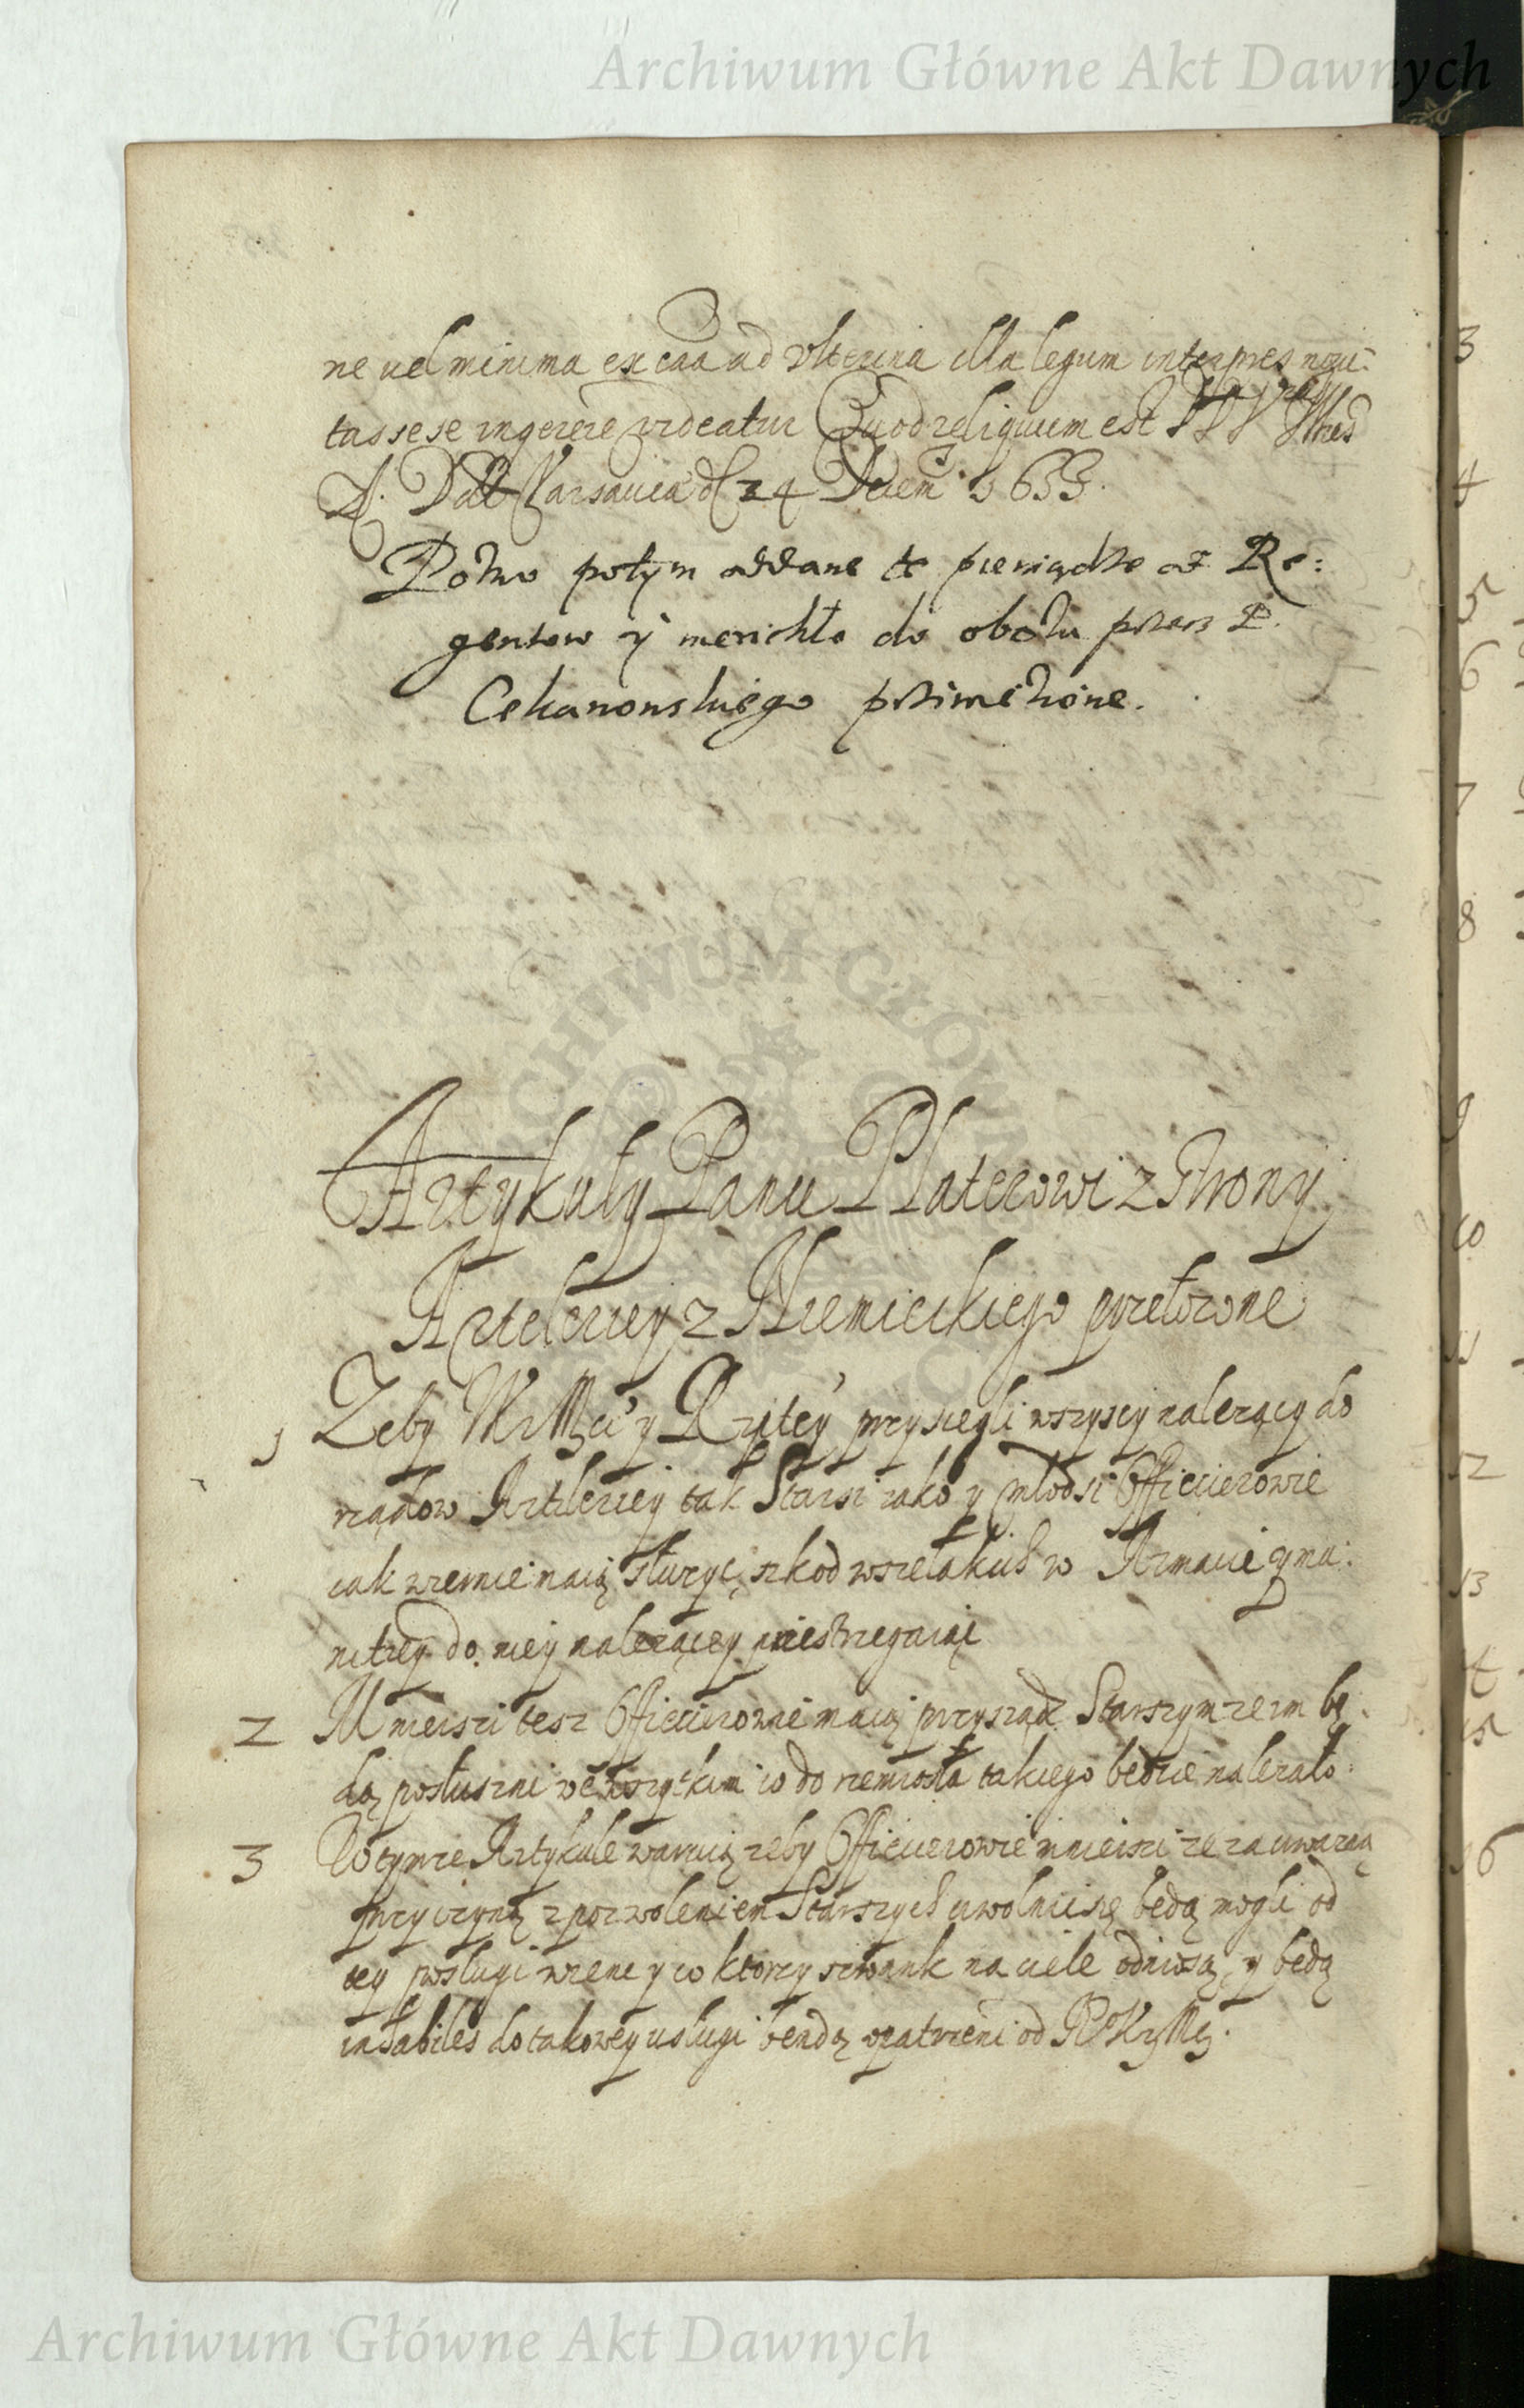 Archiwum Główne Akt Dawnych
ne vel minima ex ea ad ulteriora illa legum interpres novi:
tas sese ingerere videatur Quod reliquum est
Dat Varsaviæ d 24 Decem 1653.
Rotno potym oddane te pieniądze od Re:
gentow y do obozu przez P.
Cekanonskiego
Artykuły Panu Platerowi z strony
Arteleriey z Niemieckiego przełozone
1 Zeby KrMłci y Rzptey przysiegli wszyscy nalezący do
rządow Artileriey tak Starsi iako y młodsi Officierowie
iak wiernie maią słuzyc, szkod wszelakich w Armacie y mu:
nitiey do niey nalezącey przestrzegaiąc
2 Mnieisi tesz Officierowie maią przysządz Starszym ze im bę:
dą posłuszni we wszytkim co do rzemiosła takiego bedzie nalezało
3 Artykule waruią zeby Officierowie mnieisi ze za uwazną
przyczyną z pozwoleniem Starszych uwolnic się bedą mogli od
tey posługi y co ktorzy szwank na ciele odniosą, y bedą
inhabiles do takowey usługi bendą opatrzeni od
3
4
5
6
7
8
9
10
11
12
13
14
15
16
ARCHIWUM GŁÓWNE
Archiwum Główne Akt Dawnych